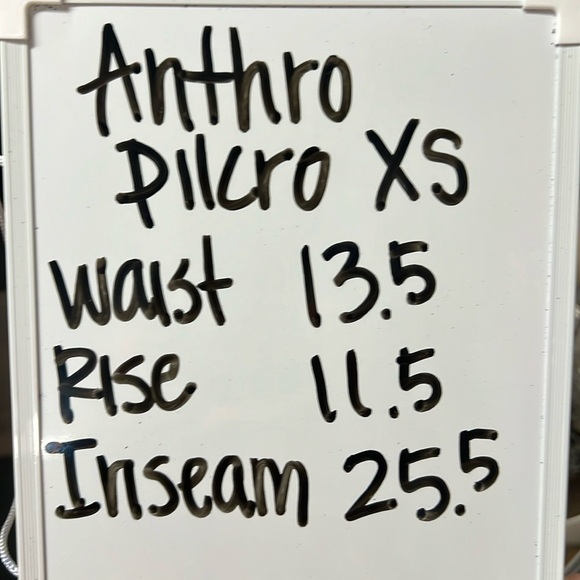 Anthro
Pilcro XS
Waist 13.5
Rise 11.5
Inseam 25.5